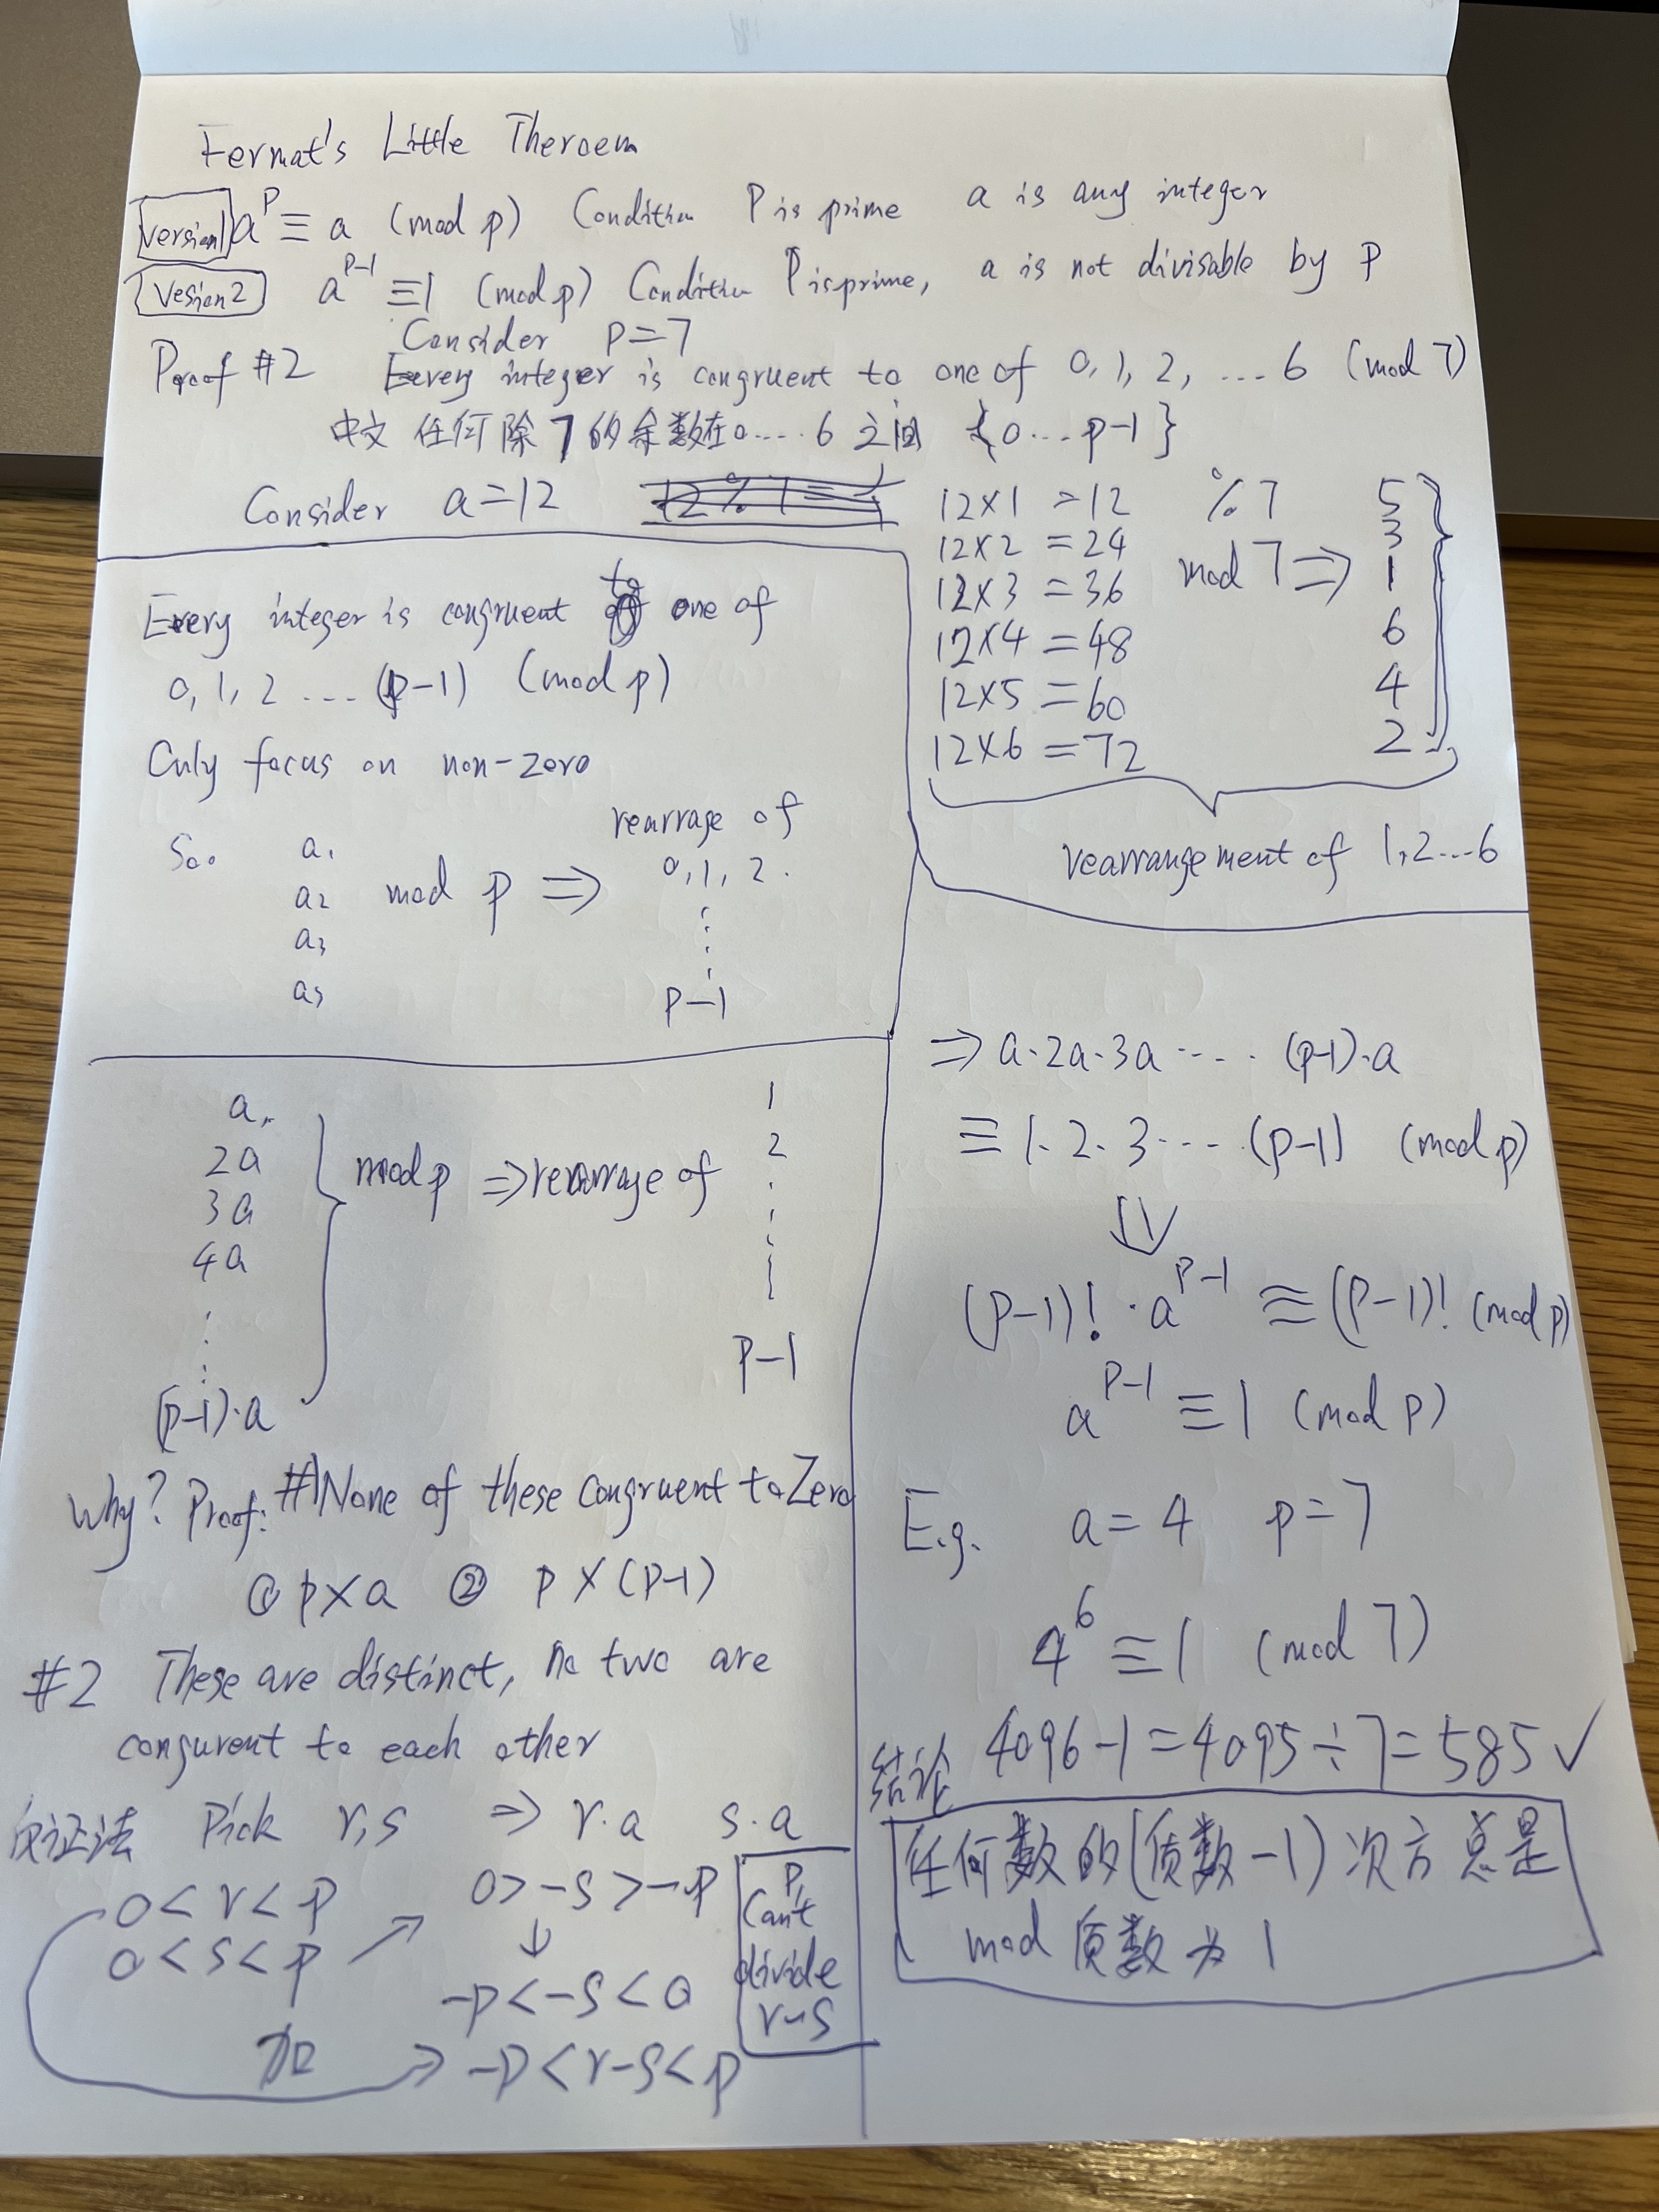 Fermat's Little Theroem
Version1 a^p ≡ a (mod p) Condition P is prime a is any integer
Vesion2 a^{p-1} ≡ 1 (mod p) Condition P is prime, a is not divisable by P
Consider P=7
Proof #2 Every integer is congruent to one of 0, 1, 2, ... 6 (mod 7)
中文 任何除7的余数在0.....6 之间 {0...p-1}
Consider a=12
12×1 =12 %7 5
12×2 =24 3
12×3 =36 mod 7 ⇒ 1
12×4 =48 6
12×5 =60 4
12×6 =72 2
rearrangement of 1,2...6
Every integer is congruent to one of
0, 1, 2 ... (p-1) (mod p)
Only focus on non-zero
rearrage of
So. a1 0, 1, 2.
a2 mod p ⇒ ⋮
a3
a3 p-1
a, 1
2a mod p ⇒ rearrage of 2
3a
4a
⋮ p-1
(p-1)·a
Why? Proof: #1 None of these congruent to Zero
① p×a ② p×(p-1)
#2 These are distinct, no two are
conguruent to each other
反证法 Pick r,s ⇒ r·a s·a
0<r<p 0>-s>-p
0<s<p ↓
-p<-s<0
加 ⇒ -p<r-s<p
P,
Can't
divide
r-s
⇒ a·2a·3a ····· (p-1)·a
≡ 1·2·3···· (p-1) (mod p)
⇓
(p-1)!·a^{p-1} ≡ (p-1)! (mod p)
a^{p-1} ≡ 1 (mod p)
E.g. a=4 p=7
4^6 ≡ 1 (mod 7)
4096-1=4095÷7=585 ✓
结论
任何数的(质数-1)次方总是
mod 质数为1